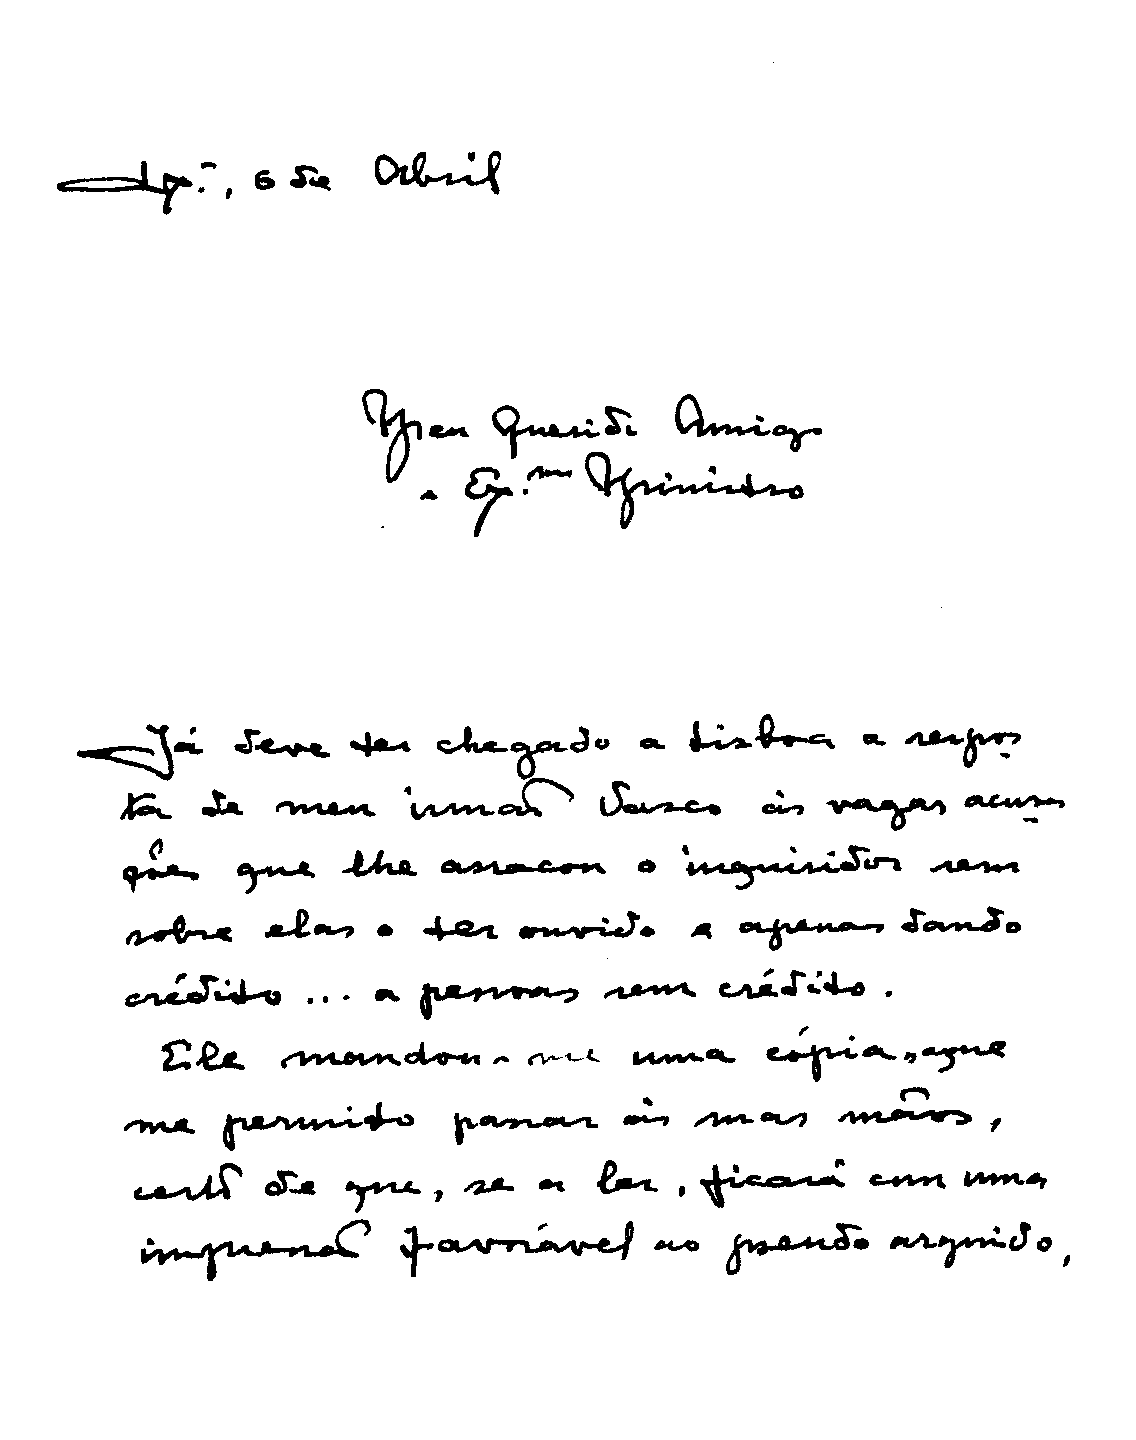 6 de Abril
Meu Querido Amigo
e Ex.mo Ministro
Já deve ter chegado a Lisboa a respos
ta de meu irmão Vasco às vagas acusa
ções que lhe assacou o inquiridor sem
sobre elas o ter ouvido e apenas dando
crédito ... a pessoas sem crédito.
Ele mandou-me uma cópia, que
me permito passar às suas mãos,
certo de que, se a ler, ficará com uma
impressão favorável ao pseudo arguido,